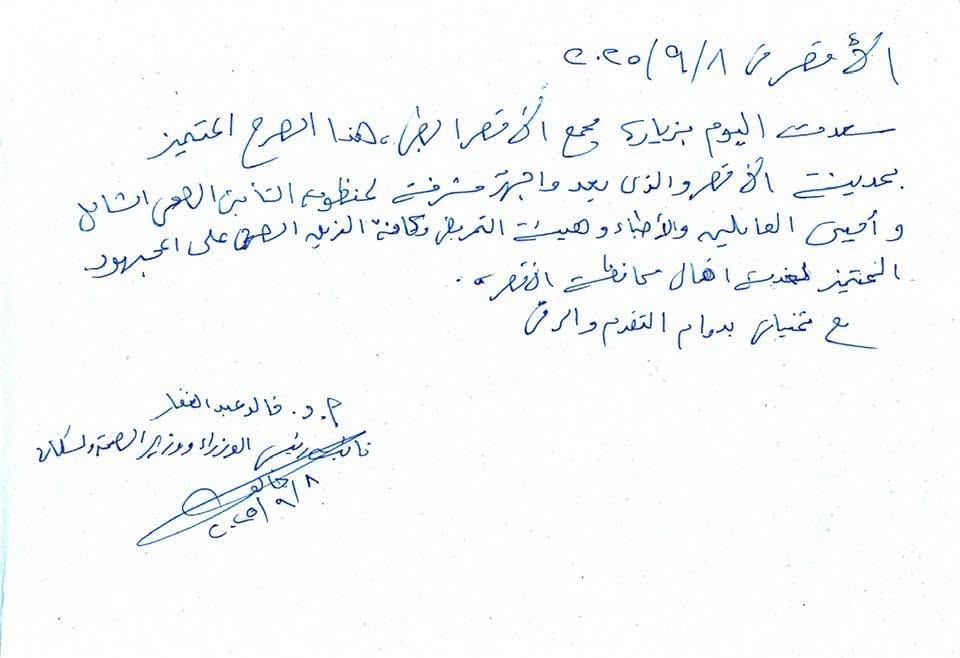 الأقصر في ٢٠٢٥/٩/٨
سعدت اليوم بزيارة مجمع الأقصر الطبي، هذا الصرح المتميز
بمدينة الأقصر والذي يعد واجهة مشرفة لمنظومة التأمين الصحي الشامل
وأحيي العاملين والأطباء وهيئة التمريض وكافة الفريق الصحي على المجهود
المتميز لخدمة أهالي محافظة الأقصر.
مع تمنياتي بدوام التقدم والرقي
أ.د. خالد عبدالغفار
نائب رئيس الوزراء ووزير الصحة والسكان
خالد
٢٠٢٥/٩/٨